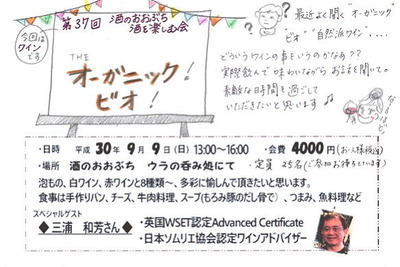 第37回 酒のおおぶち
酒を楽しむ会
今回は
ワイン
です
THE
オーガニック!
ビオ!
最近よく聞く"オーガニック"
ビオ" "自然派ワイン"....
どういうワインの事をいうのかなぁ??
実際飲んで味わいながらお話を聞いて。
素敵な時間を過ごして
いただきたいと思います♫
なーるほど。
・日時 平成 30年 9月 9日(日) 13:00〜16:00 ・会費 4000円(お一人様税込)
・場所 酒のおおぶち ウラの呑み処にて ・定員 25名(ご参加お待ちしています)
泡もの、白ワイン、赤ワインと8種類〜、多彩に愉しんで頂きたいと思います。
食事は手作りパン、チーズ、牛肉料理、スープ(もろみ豚のだし骨で)、つまみ、魚料理など
スペシャルゲスト
◆三浦 和芳さん◆
・英国WSET認定Advanced Certificate
・日本ソムリエ協会認定ワインアドバイザー